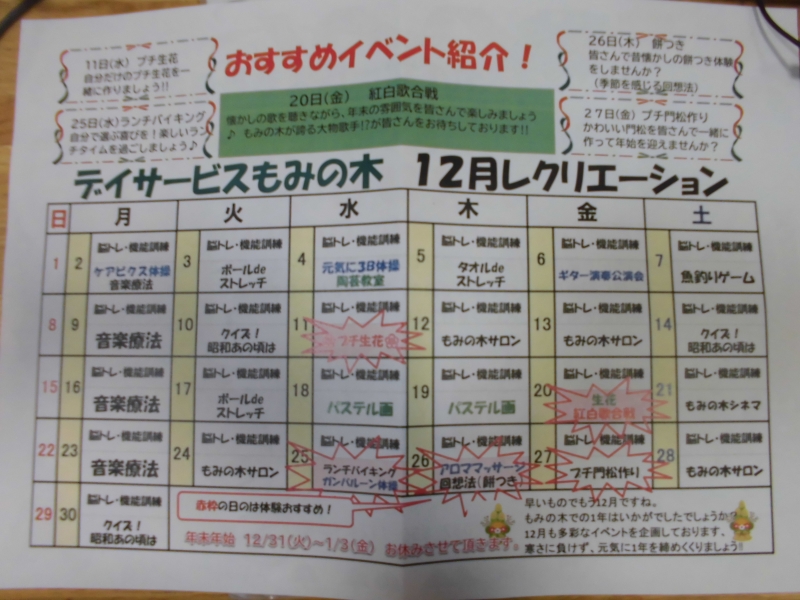 おすすめイベント紹介！
11日(水) プチ生花
自分だけのプチ生花を一
緒に作りましょう!!
25日(水)ランチバイキング
自分で選ぶ喜びを！楽しいラン
チタイムを過ごしましょう♪
20日(金) 紅白歌合戦
懐かしの歌を聴きながら、年末の雰囲気を皆さんで楽しみましょう
♪ もみの木が誇る大物歌手!?が皆さんをお待ちしております!!
26日(木) 餅つき
皆さんで昔懐かしの餅つき体験
をしませんか？
(季節を感じる回想法)
27日(金) プチ門松作り
かわいい門松を皆さんで一緒に
作って年始を迎えませんか？
デイサービスもみの木 12月レクリエーション
日 月 火 水 木 金 土
1
2 脳トレ・機能訓練
ケアビクス体操
音楽療法
3 脳トレ・機能訓練
ボールde
ストレッチ
4 脳トレ・機能訓練
元気に3B体操
陶芸教室
5 脳トレ・機能訓練
タオルde
ストレッチ
6 脳トレ・機能訓練
ギター演奏公演会
7 脳トレ・機能訓練
魚釣りゲーム
8
9 脳トレ・機能訓練
音楽療法
10 脳トレ・機能訓練
クイズ！
昭和あの頃は
11 脳トレ・機能訓練
プチ生花
12 脳トレ・機能訓練
もみの木サロン
13 脳トレ・機能訓練
もみの木サロン
14 脳トレ・機能訓練
クイズ！
昭和あの頃は
15
16 脳トレ・機能訓練
音楽療法
17 脳トレ・機能訓練
ボールde
ストレッチ
18 脳トレ・機能訓練
パステル画
19 脳トレ・機能訓練
パステル画
20 脳トレ・機能訓練
生花
紅白歌合戦
21 脳トレ・機能訓練
もみの木シネマ
22
23 脳トレ・機能訓練
音楽療法
24 脳トレ・機能訓練
もみの木サロン
25 脳トレ・機能訓練
ランチバイキング
ガンバルーン体操
26 脳トレ・機能訓練
アロママッサージ
回想法(餅つき)
27 脳トレ・機能訓練
プチ門松作り
28 脳トレ・機能訓練
もみの木サロン
29
30 脳トレ・機能訓練
クイズ！
昭和あの頃は
赤枠の日のは体験おすすめ！
年末年始 12/31(火)～1/3(金) お休みさせて頂きます。
早いものでもう12月ですね。
もみの木での1年はいかがでしたでしょうか？
12月も多彩なイベントを企画しております。
寒さに負けず、元気に1年を締めくくりましょう！